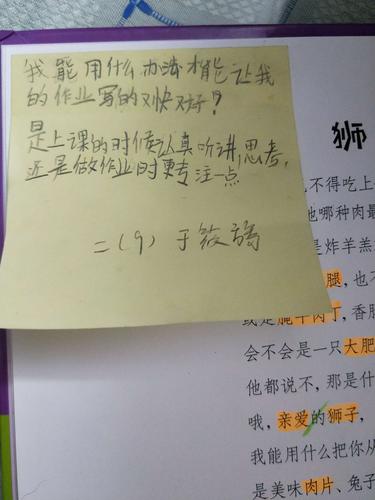 我能用什么办法才能让我
的作业写的又快又好？
是上课的时候认真听讲,思考,
还是做作业时更专注一点
二(9) 于筱
狮
不得吃上
他哪种肉最
是炸羊羔
腿，也不
或是腌牛肉丁，香肠
会不会是一只大肥
他都说不，那是什
哦，亲爱的狮子，
我能用什么把你从
是美味肉片、兔子